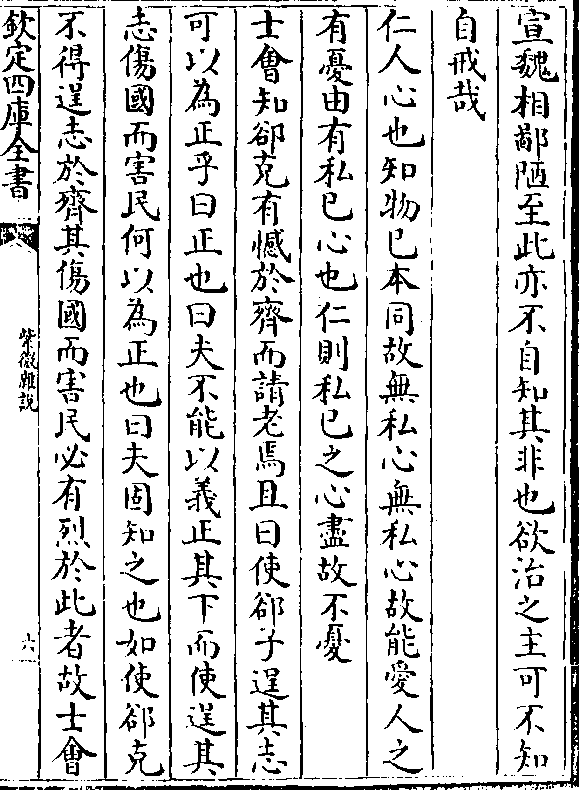 宣魏相鄙陋至此亦不自知其非也欲治之主可不知
自戒哉
仁人心也知物已本同故無私心無私心故能愛人之
有憂由有私已心也仁則私已之心盡故不憂
士會知郤克有憾於齊而請老焉且曰使郤子逞其志
可以為正乎曰正也曰夫不能以義正其下而使逞其
志傷國而害民何以為正也曰夫固知之也如使郤克
不得逞志於齊其傷國而害民必有烈於此者故士會
欽定四庫全書
紫微雜說
六